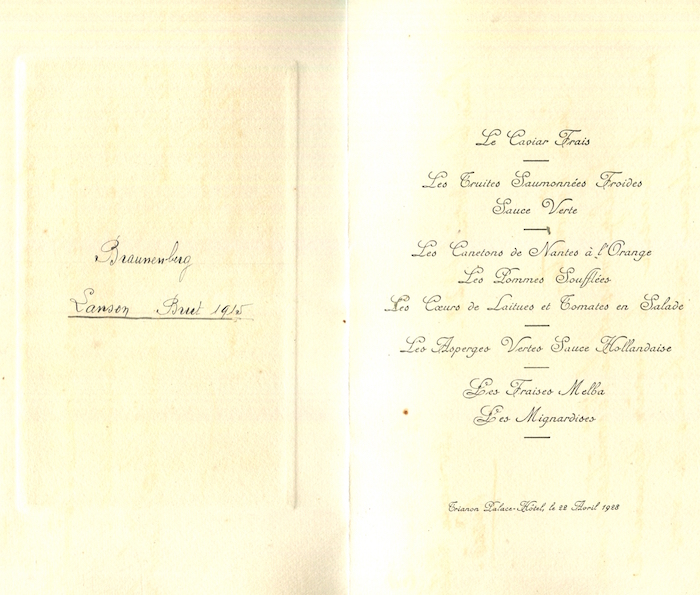 Braunenberg
Lanson Brut 1915
Le Caviar Frais
Les Truites Saumonnées Froides
Sauce Verte
Les Canetons de Nantes à l'Orange
Les Pommes Soufflées
Les Cœurs de Laitues et Tomates en Salade
Les Asperges Vertes Sauce Hollandaise
Les Fraises Melba
Les Mignardises
Trianon Palace-Hôtel, le 22 Avril 1928